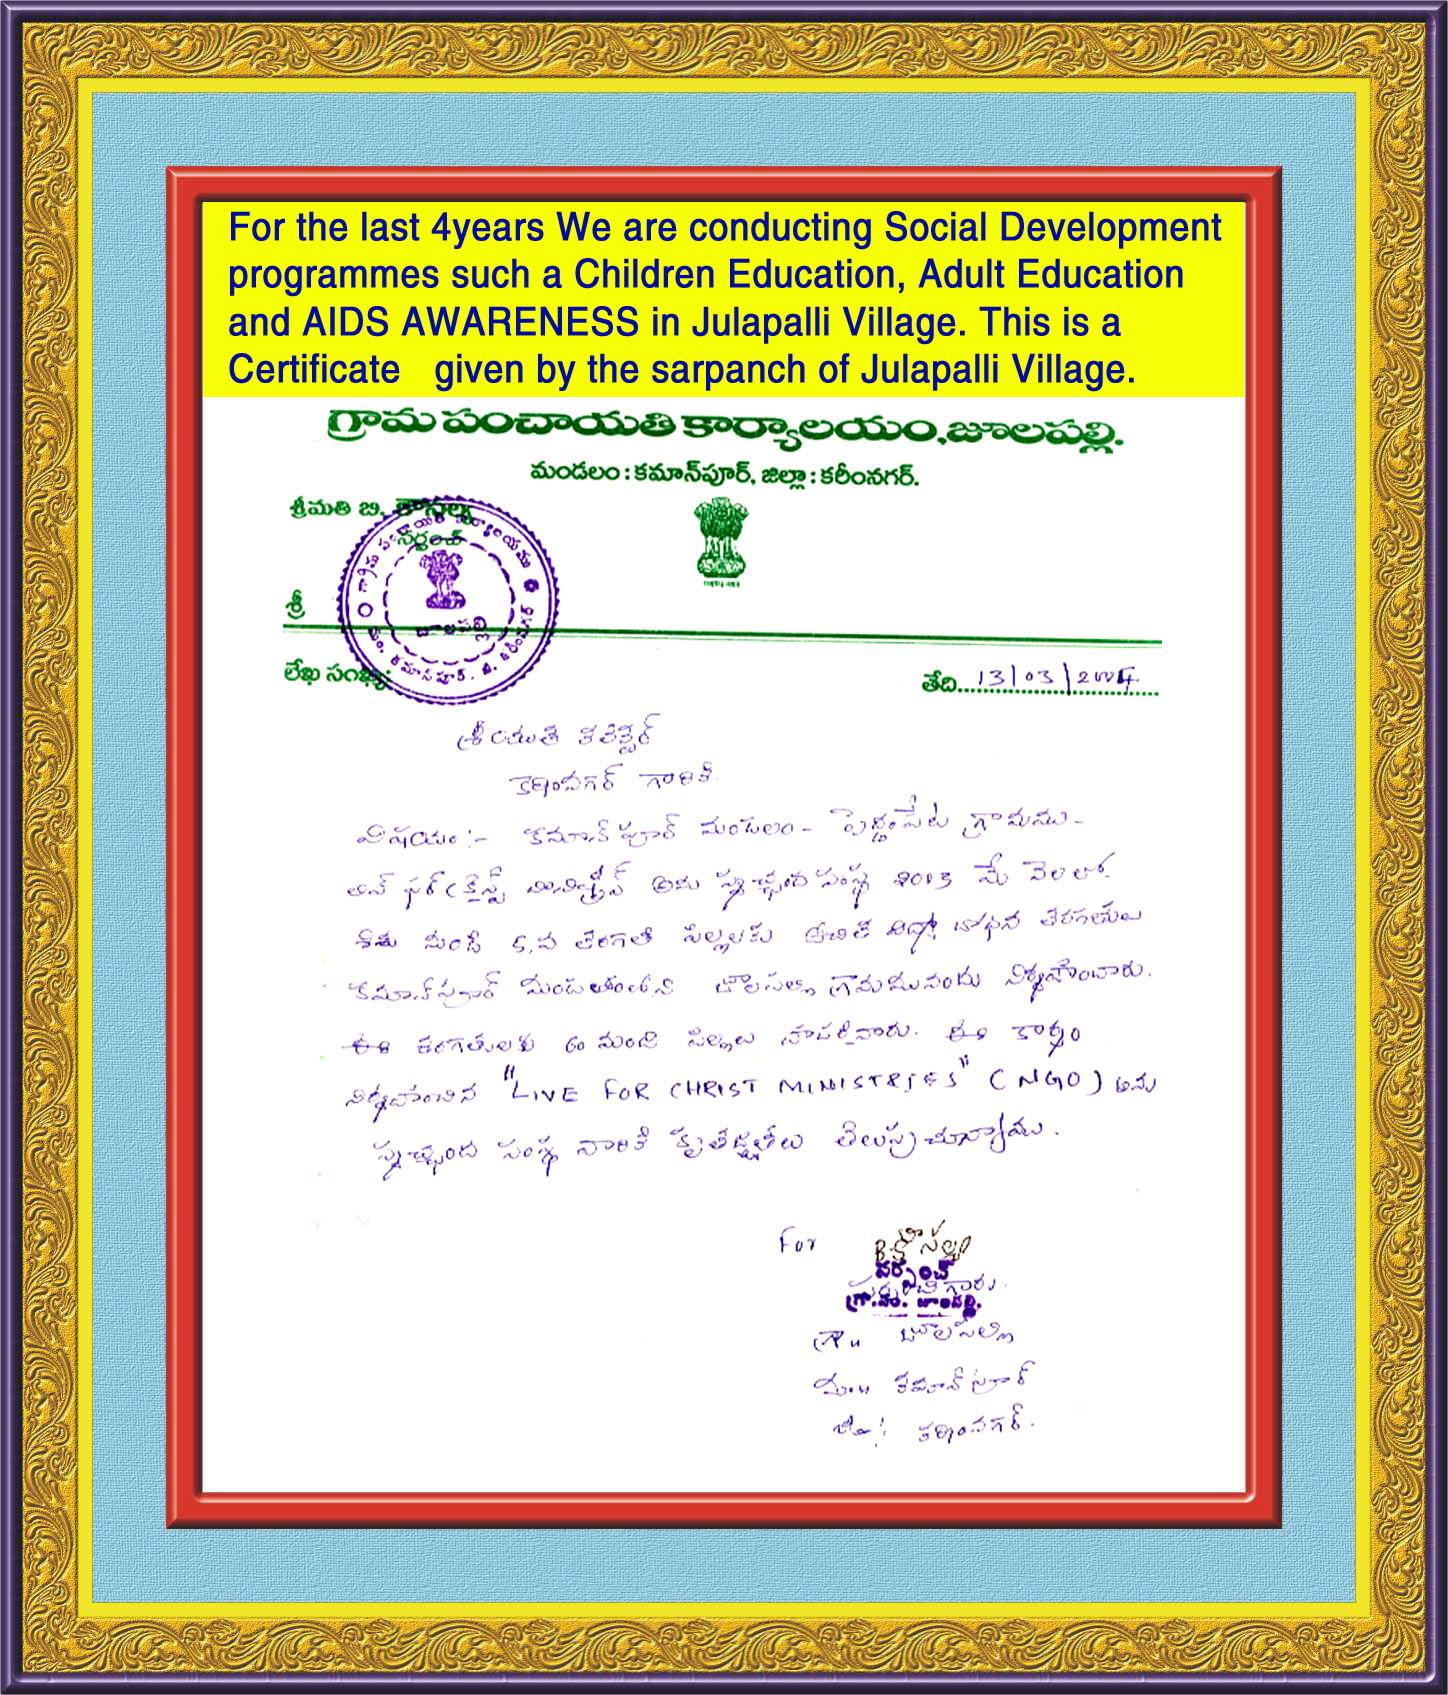 For the last 4years We are conducting Social Development
programmes such a Children Education, Adult Education
and AIDS AWARENESS in Julapalli Village. This is a
Certificate given by the sarpanch of Julapalli Village.
గ్రామ పంచాయతి కార్యాలయం,జూలపల్లి.
మండలం : కమాన్‌పూర్, జిల్లా : కరీంనగర్.
శ్రీమతి బి. కౌసల్య
సర్పంచ్
శ్రీ
జూలపల్లి
లేఖ సంఖ్య:
తేది. 13/03/2004
శ్రీయుత కలెక్టర్
కరీంనగర్ గారికి.
విషయం :- కమాన్ పూర్ మండలం - పెద్దంపేట గ్రామము -
లివ్ ఫర్ క్రైస్ట్ మినిస్ట్రీస్ అను స్వచ్ఛంద సంస్థ 2003 మే నెలలో
నుండి 5.వ తరగతి పిల్లలకు ఉచిత విద్యా బోధన తరగతులు
కమాన్‌పూర్ మండలంలోని జూలపల్లి గ్రామమునందు నిర్వహించారు.
ఈ తరగతులకు 60 మంది పిల్లలు హాజరైనారు. ఈ కార్యం
నిర్వహించిన "LIVE FOR CHRIST MINISTRIES" (NGO) అను
స్వచ్ఛంద సంస్థ వారికి కృతజ్ఞతలు తెలుపుచున్నాము.
For
సర్పంచ్
సర్పంచి గారు.
గ్రా.పం. జూలపల్లి.
గ్రా॥ జూలపల్లి
మం॥ కమాన్ పూర్
జి॥ కరీంనగర్.